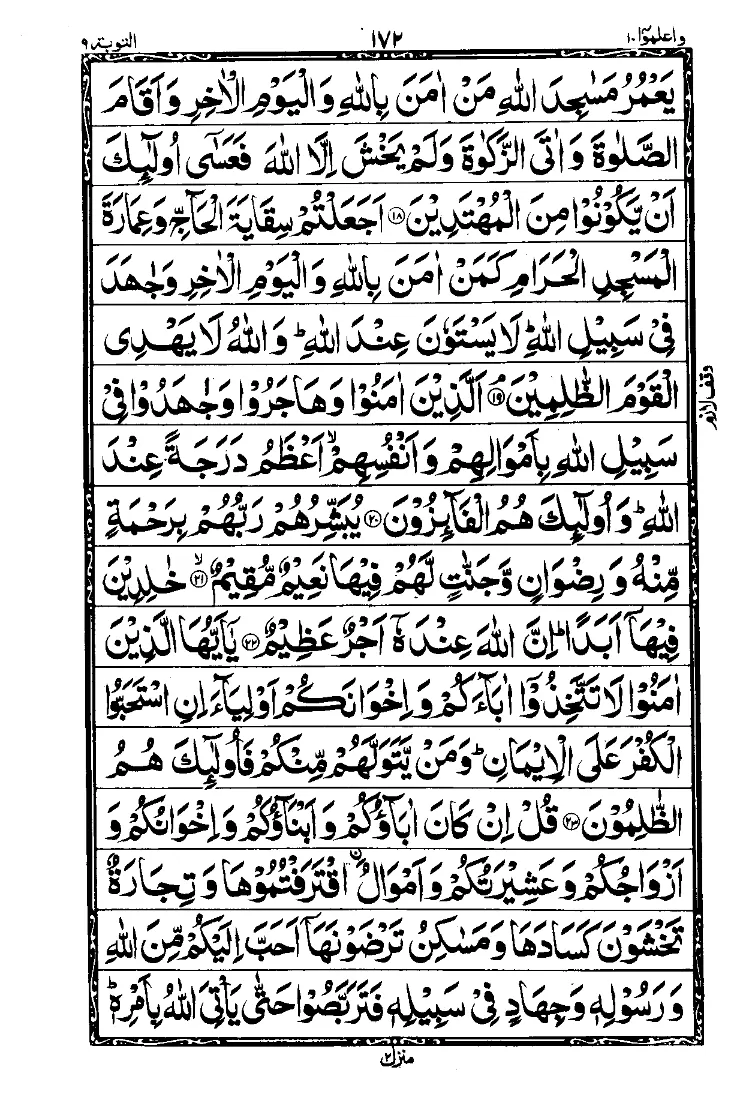 واعلموٓا ١٠ ١٧٢ التوبة ٩
يَعۡمُرُ مَسٰجِدَ اللّٰهِ مَنۡ اٰمَنَ بِاللّٰهِ وَالۡيَوۡمِ الۡاٰخِرِ وَاَقَامَ
الصَّلٰوةَ وَاٰتَى الزَّكٰوةَ وَلَمۡ يَخۡشَ اِلَّا اللّٰهَ فَعَسٰٓى اُولٰٓئِكَ
اَنۡ يَّكُوۡنُوۡا مِنَ الۡمُهۡتَدِيۡنَ ۝۱۸ اَجَعَلۡتُمۡ سِقَايَةَ الۡحَآجِّ وَعِمَارَةَ
الۡمَسۡجِدِ الۡحَرَامِ كَمَنۡ اٰمَنَ بِاللّٰهِ وَالۡيَوۡمِ الۡاٰخِرِ وَجٰهَدَ
فِىۡ سَبِيۡلِ اللّٰهِ ؕ لَا يَسۡتَوٗنَ عِنۡدَ اللّٰهِ ؕ وَاللّٰهُ لَا يَهۡدِى
الۡقَوۡمَ الظّٰلِمِيۡنَ ۝۱۹ۘ اَلَّذِيۡنَ اٰمَنُوۡا وَهَاجَرُوۡا وَجٰهَدُوۡا فِىۡ
وقف لازم
سَبِيۡلِ اللّٰهِ بِاَمۡوَالِهِمۡ وَاَنۡفُسِهِمۡ ۙ اَعۡظَمُ دَرَجَةً عِنۡدَ
اللّٰهِ ؕ وَاُولٰٓئِكَ هُمُ الۡفَآئِزُوۡنَ ۝۲۰ يُبَشِّرُهُمۡ رَبُّهُمۡ بِرَحۡمَةٍ
مِّنۡهُ وَرِضۡوَانٍ وَّجَنّٰتٍ لَّهُمۡ فِيۡهَا نَعِيۡمٌ مُّقِيۡمٌ ۝۲۱ۙ خٰلِدِيۡنَ
فِيۡهَاۤ اَبَدًا ؕ اِنَّ اللّٰهَ عِنۡدَهٗۤ اَجۡرٌ عَظِيۡمٌ ۝۲۲ يٰۤاَيُّهَا الَّذِيۡنَ
اٰمَنُوۡا لَا تَتَّخِذُوۡۤا اٰبَآءَكُمۡ وَاِخۡوَانَكُمۡ اَوۡلِيَآءَ اِنِ اسۡتَحَبُّوا
الۡكُفۡرَ عَلَى الۡاِيۡمَانِ ؕ وَمَنۡ يَّتَوَلَّهُمۡ مِّنۡكُمۡ فَاُولٰٓئِكَ هُمُ
الظّٰلِمُوۡنَ ۝۲۳ قُلۡ اِنۡ كَانَ اٰبَآؤُكُمۡ وَاَبۡنَآؤُكُمۡ وَاِخۡوَانُكُمۡ وَ
اَزۡوَاجُكُمۡ وَعَشِيۡرَتُكُمۡ وَاَمۡوَالُ ۨ اقۡتَرَفۡتُمُوۡهَا وَتِجَارَةٌ
تَخۡشَوۡنَ كَسَادَهَا وَمَسٰكِنُ تَرۡضَوۡنَهَاۤ اَحَبَّ اِلَيۡكُمۡ مِّنَ اللّٰهِ
وَرَسُوۡلِهٖ وَجِهَادٍ فِىۡ سَبِيۡلِهٖ فَتَرَبَّصُوۡا حَتّٰى يَاۡتِىَ اللّٰهُ بِاَمۡرِهٖ ؕ
منزل ٢